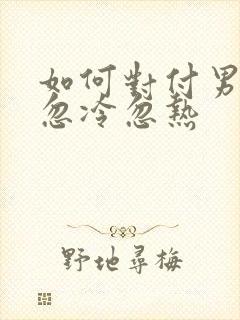 如何對付男
忽冷忽熱
野地尋梅